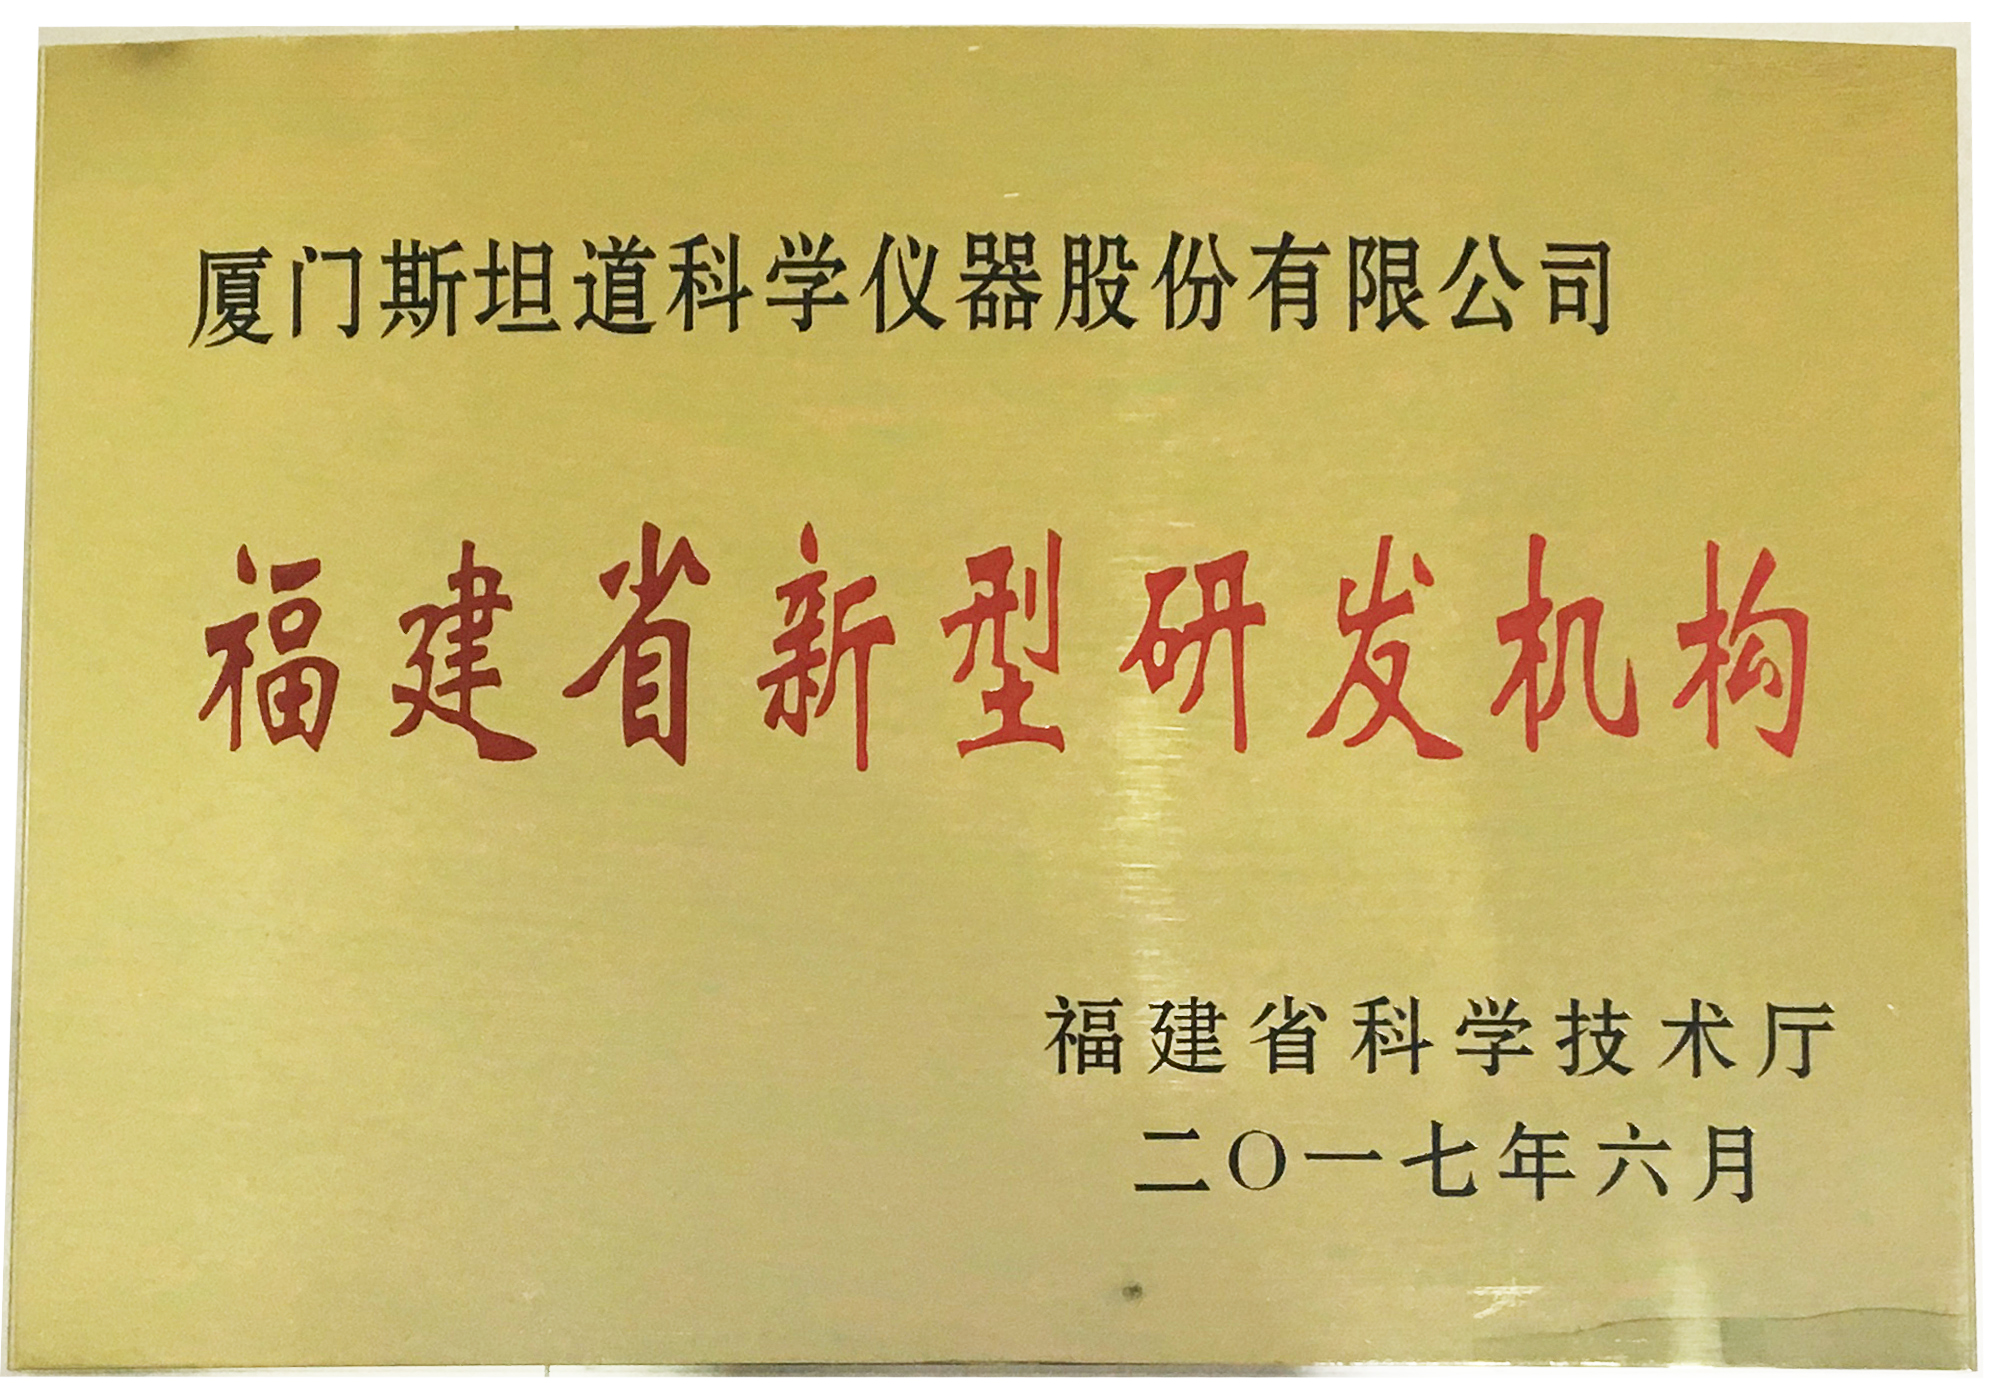 厦门斯坦道科学仪器股份有限公司
福建省新型研发机构
福建省科学技术厅
二〇一七年六月